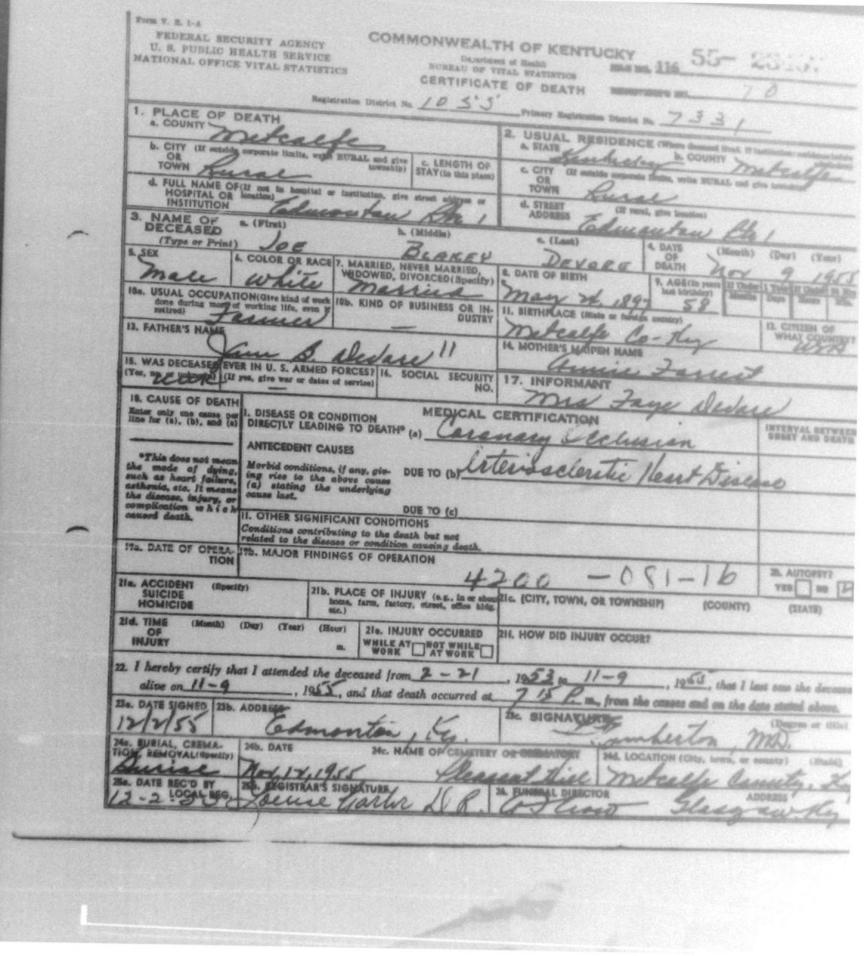 Form V. S. 1-A
FEDERAL SECURITY AGENCY
U. S. PUBLIC HEALTH SERVICE
NATIONAL OFFICE VITAL STATISTICS
COMMONWEALTH OF KENTUCKY
Department of Health
BUREAU OF VITAL STATISTICS
CERTIFICATE OF DEATH
FILE NO. 116 55-
REGISTRAR'S NO. 70
Registration District No. 1055 Primary Registration District No. 7331
1. PLACE OF DEATH
a. COUNTY Metcalfe
b. CITY (If outside corporate limits, write RURAL and give township)
OR
TOWN Rural
c. LENGTH OF STAY (in this place)
d. FULL NAME OF (If not in hospital or institution, give street address or location)
HOSPITAL OR
INSTITUTION Edmonton Rt. 1
2. USUAL RESIDENCE (Where deceased lived. If institution: residence before
a. STATE Kentucky b. COUNTY Metcalfe
c. CITY (If outside corporate limits, write RURAL and give township)
OR
TOWN Rural
d. STREET (If rural, give location)
ADDRESS Edmonton Rt. 1
3. NAME OF DECEASED
(Type or Print)
a. (First) JOE b. (Middle) BLAKEY c. (Last) DEVORE
4. DATE OF DEATH (Month) (Day) (Year) Nov 9 1955
5. SEX Male
6. COLOR OR RACE White
7. MARRIED, NEVER MARRIED, WIDOWED, DIVORCED (Specify) Married
8. DATE OF BIRTH May 1897
9. AGE (In years last birthday) 58 If Under 1 Year If Under 24 Hrs.
Months Days Hours
10a. USUAL OCCUPATION (Give kind of work done during most of working life, even if retired) Farmer
10b. KIND OF BUSINESS OR INDUSTRY —
11. BIRTHPLACE (State or foreign country) Metcalfe Co-Ky
12. CITIZEN OF WHAT COUNTRY? USA
13. FATHER'S NAME B. Devore
14. MOTHER'S MAIDEN NAME Annie Forrest
15. WAS DECEASED EVER IN U. S. ARMED FORCES?
(Yes, no, or unknown) (If yes, give war or dates of service) —
16. SOCIAL SECURITY NO.
17. INFORMANT Mrs Faye Devore
18. CAUSE OF DEATH
Enter only one cause per line for (a), (b), and (c)
*This does not mean the mode of dying, such as heart failure, asthenia, etc. It means the disease, injury, or complication which caused death.
MEDICAL CERTIFICATION
INTERVAL BETWEEN ONSET AND DEATH
I. DISEASE OR CONDITION
DIRECTLY LEADING TO DEATH* (a) Coronary Occlusion
ANTECEDENT CAUSES
Morbid conditions, if any, giving rise to the above cause (a) stating the underlying cause last.
DUE TO (b) Arteriosclerotic Heart Disease
DUE TO (c)
II. OTHER SIGNIFICANT CONDITIONS
Conditions contributing to the death but not related to the disease or condition causing death.
19a. DATE OF OPERATION
19b. MAJOR FINDINGS OF OPERATION
4200 - 081-16
20. AUTOPSY?
YES NO
21a. ACCIDENT (Specify)
SUICIDE
HOMICIDE
21b. PLACE OF INJURY (e.g., in or about home, farm, factory, street, office bldg. etc.)
21c. (CITY, TOWN, OR TOWNSHIP) (COUNTY) (STATE)
21d. TIME OF INJURY (Month) (Day) (Year) (Hour) m.
21e. INJURY OCCURRED
WHILE AT WORK NOT WHILE AT WORK
21f. HOW DID INJURY OCCUR?
22. I hereby certify that I attended the deceased from 2-21, 1953 to 11-9, 1955, that I last saw the deceased
alive on 11-9, 1955, and that death occurred at 7 15 P. m., from the causes and on the date stated above.
23a. DATE SIGNED 12/2/55
23b. ADDRESS Edmonton, Ky.
23c. SIGNATURE Lamberton, MD. (Degree or title)
24a. BURIAL, CREMATION, REMOVAL (Specify) Burial
24b. DATE Nov. 12, 1955
24c. NAME OF CEMETERY OR CREMATORY Pleasant Hill
24d. LOCATION (City, town, or county) (State) Metcalfe County, Ky
25a. DATE REC'D BY LOCAL REG. 12-2-55
25b. REGISTRAR'S SIGNATURE Louise Carter D.R.
26. FUNERAL DIRECTOR ADDRESS Glasgow Ky